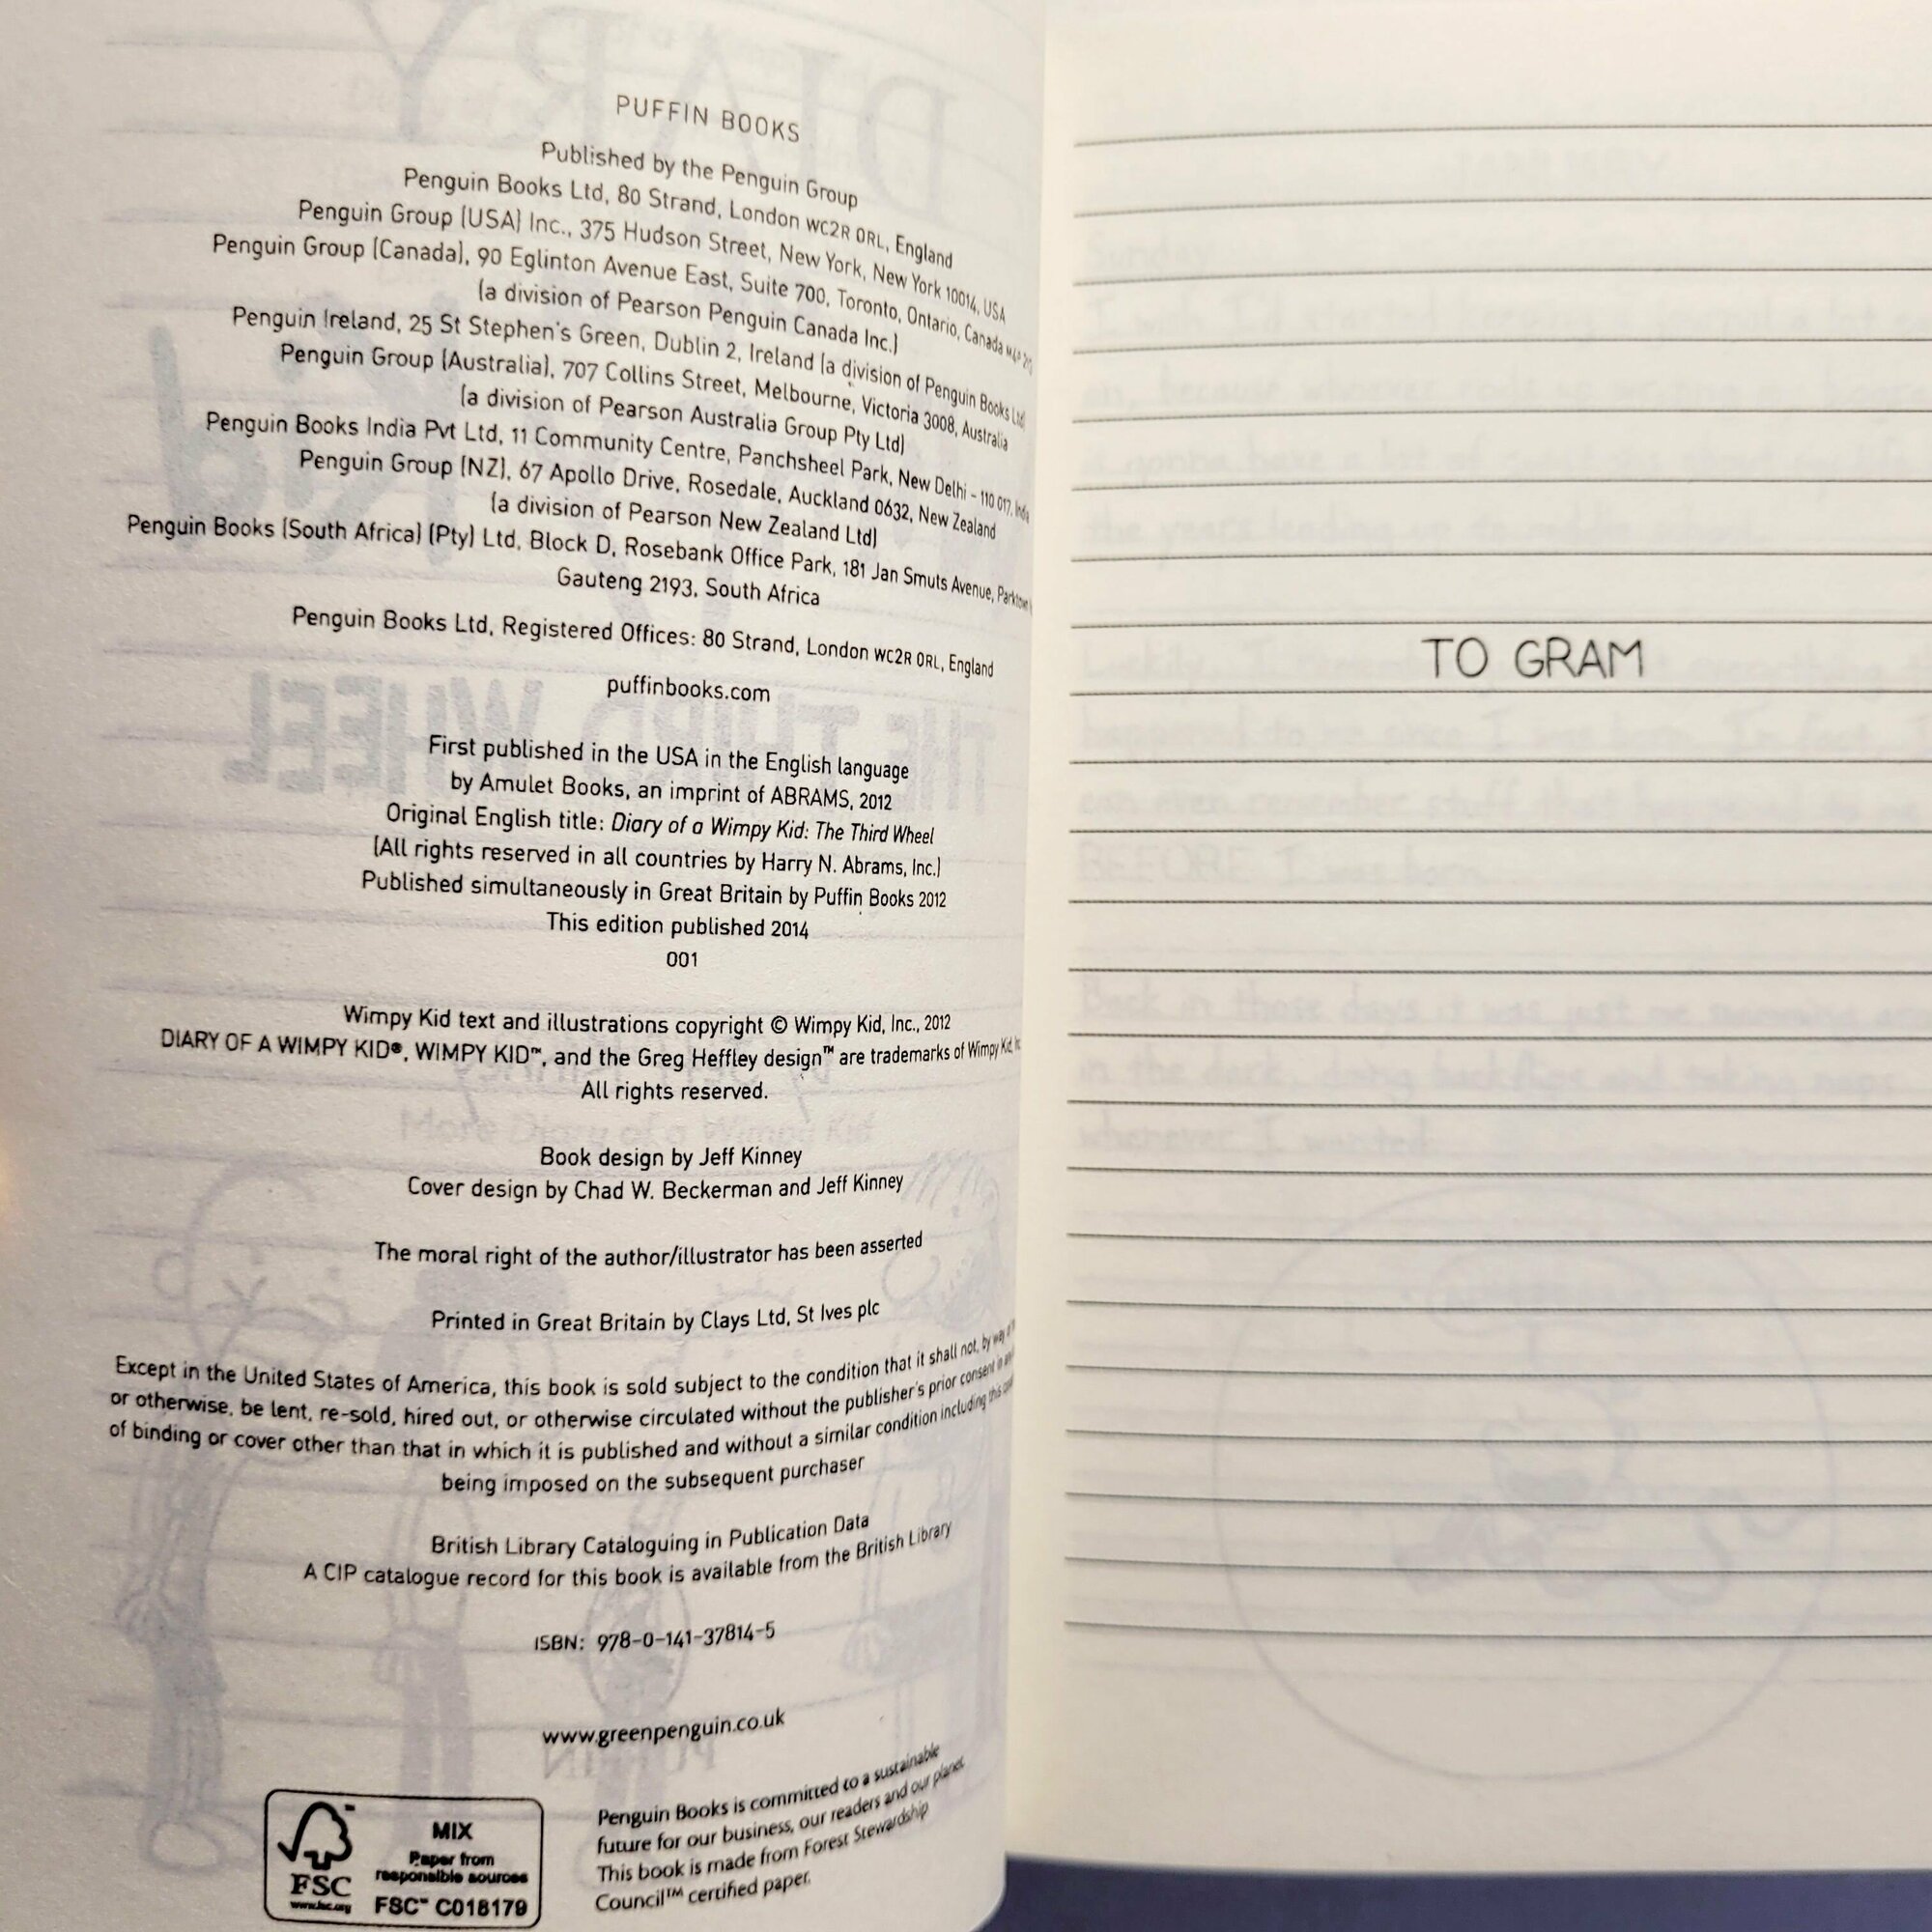 PUFFIN BOOKS
Published by the Penguin Group
Penguin Books Ltd, 80 Strand, London WC2R 0RL, England
Penguin Group (USA) Inc., 375 Hudson Street, New York, New York 10014, USA
Penguin Group (Canada), 90 Eglinton Avenue East, Suite 700, Toronto, Ontario, Canada M4P
(a division of Pearson Penguin Canada Inc.)
Penguin Ireland, 25 St Stephen's Green, Dublin 2, Ireland (a division of Penguin Books Ltd)
Penguin Group (Australia), 707 Collins Street, Melbourne, Victoria 3008, Australia
(a division of Pearson Australia Group Pty Ltd)
Penguin Books India Pvt Ltd, 11 Community Centre, Panchsheel Park, New Delhi – 110 017, India
Penguin Group (NZ), 67 Apollo Drive, Rosedale, Auckland 0632, New Zealand
(a division of Pearson New Zealand Ltd)
Penguin Books (South Africa) (Pty) Ltd, Block D, Rosebank Office Park, 181 Jan Smuts Avenue, Parktown
Gauteng 2193, South Africa
Penguin Books Ltd, Registered Offices: 80 Strand, London WC2R 0RL, England
puffinbooks.com
First published in the USA in the English language
by Amulet Books, an imprint of ABRAMS, 2012
Original English title: Diary of a Wimpy Kid: The Third Wheel
(All rights reserved in all countries by Harry N. Abrams, Inc.)
Published simultaneously in Great Britain by Puffin Books 2012
This edition published 2014
001
Wimpy Kid text and illustrations copyright © Wimpy Kid, Inc., 2012
DIARY OF A WIMPY KID®, WIMPY KID™, and the Greg Heffley design™ are trademarks of Wimpy Kid,
All rights reserved.
Book design by Jeff Kinney
Cover design by Chad W. Beckerman and Jeff Kinney
The moral right of the author/illustrator has been asserted
Printed in Great Britain by Clays Ltd, St Ives plc
Except in the United States of America, this book is sold subject to the condition that it shall not, by way of
or otherwise, be lent, re-sold, hired out, or otherwise circulated without the publisher's prior consent in
of binding or cover other than that in which it is published and without a similar condition including this
being imposed on the subsequent purchaser
British Library Cataloguing in Publication Data
A CIP catalogue record for this book is available from the British Library
ISBN: 978-0-141-37814-5
www.greenpenguin.co.uk
FSC
www.fsc.org
MIX
Paper from
responsible sources
FSC™ C018179
Penguin Books is committed to a sustainable
future for our business, our readers and our planet.
This book is made from Forest Stewardship
Council™ certified paper.
TO GRAM